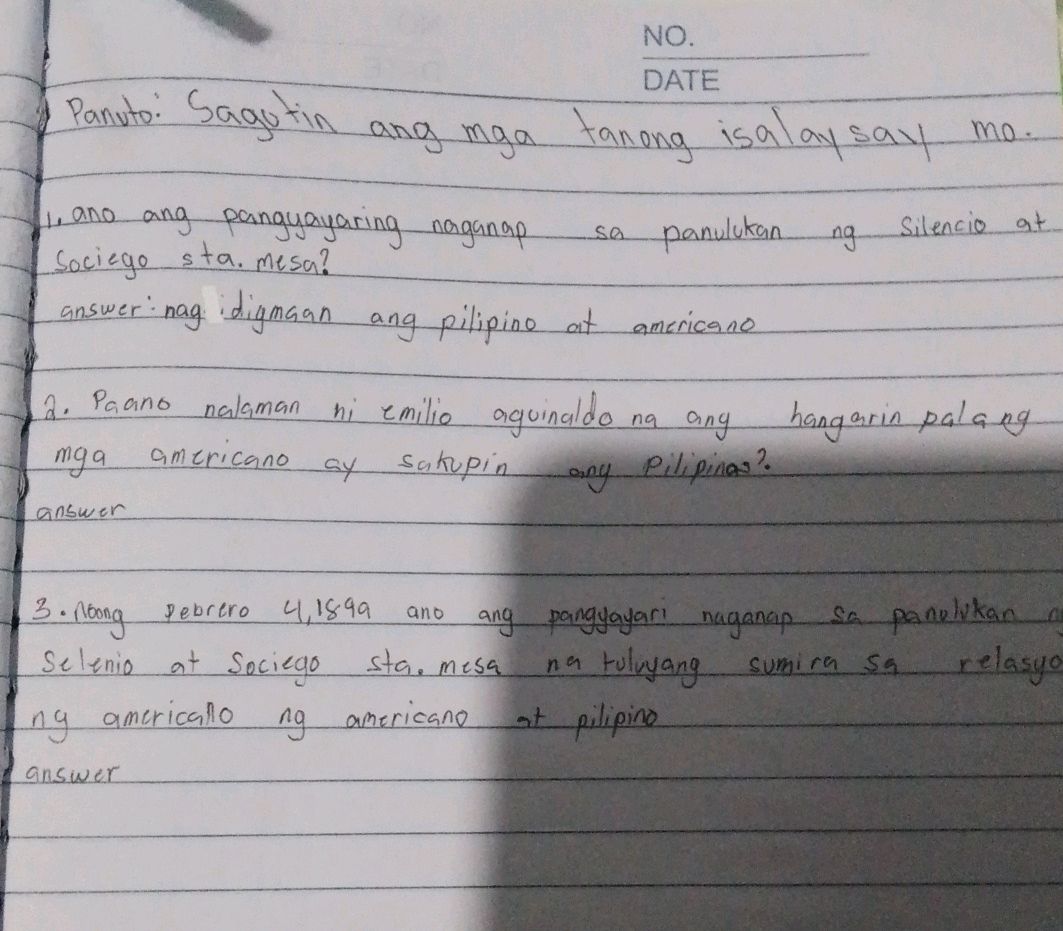 NO.
DATE
Panuto: Sagutin ang mga tanong isalaysay mo.
1. ano ang pangyayaring naganap sa panulukan ng Silencio at
Sociego sta. mesa?
answer: nag digmaan ang pilipino at americano
2. Paano nalaman ni emilio aguinaldo na ang hangarin palang
mga americano ay sakupin ang Pilipinas?
answer
3. Noong Pebrero 4,1899 ano ang pangyayari naganap sa panulukan
Selenio at Sociego sta. mesa na tuluyang sumira sa relasyo
ng americano ng americano at pilipino
answer